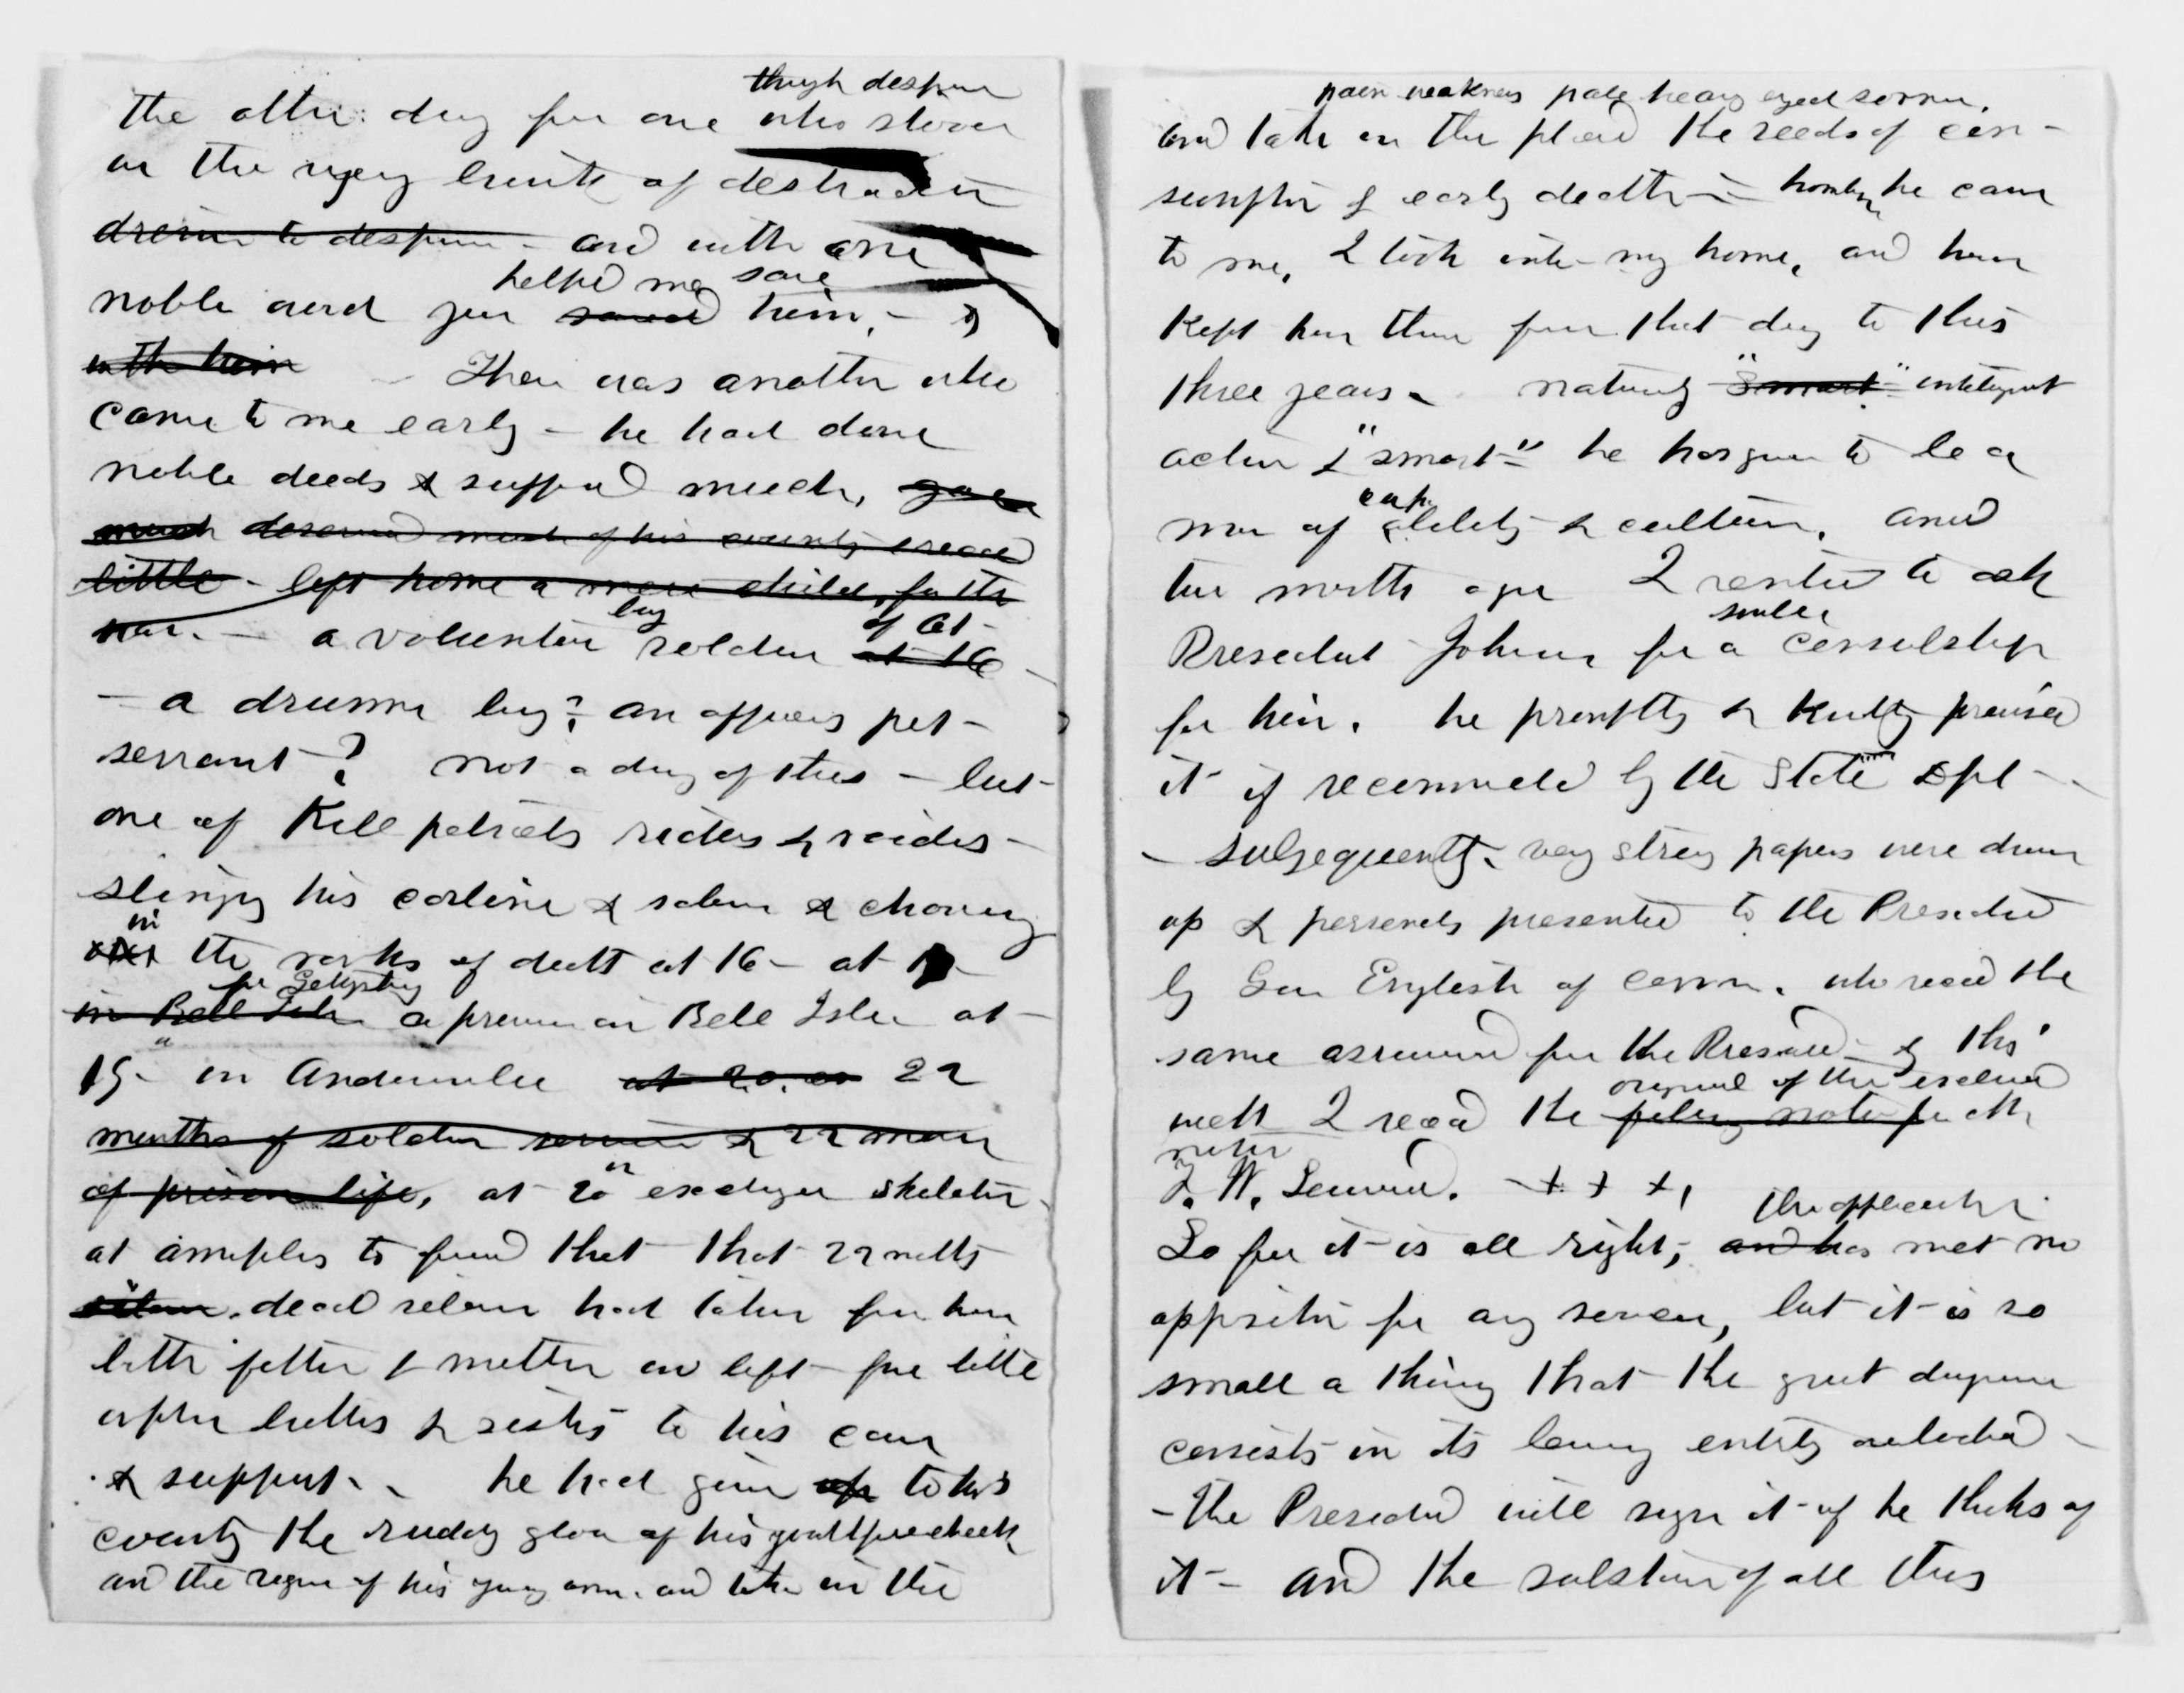 through despair
the other day for one who stood
on the very brink of distraction
driven to despair - and with one
helped me save
noble word you saved him, -
with him - There was another who
came to me early - he had done
noble deeds & suffered much, gave
much deserved much of his country received
little - left home a mere child, for the
boy of 61 -
war. - a volunteer soldier at 16 -
- a drummer boy? an officers pet -
servant? not a day of this - but
one of Kill patricks riders & raiders -
slinging his carbine & sabre & charging
in
the ranks of death at 16 - at
for Gettysburg
in Bell Isle a prisoner on Bell Isle at
19 - in Andersonville at 20. 22
months of soldier service & 22 more
of prison life, at 20 exchanged skeleton
at annapolis to find that that 22 months
dead silence had taken from him
both father & mother and left five little
orphan brothers & sisters to his care
& support - he had given up to his
country the ruddy glow of his youthful cheek
and the vigor of his young arm. and taken in the
pain weakness pale heavy eyed sorrow.
and taken in the place the seeds of con -
sumption & early death - he came
to me, I took into my home, and have
kept him there from that day to this
three years - naturally "Smart" intelligent
active & "smart" he has grown to be a
cap
man of ability & culture, and
two months ago I ventured to ask
small
President Johnson for a consulship
for him. he promptly & kindly promised
it if recommended by the State Dpt -
- Subsequently, very strong papers were drawn
up & personally presented to the President
by Gen English of Conn. who recd the
same assurance from the President - & this
original of the enclosed
week I recd the note from
note
F. W. Seward. - + + +,
the application
So far it is all right, and has met no
opposition from any source, but it is so
small a thing that the great danger
consists in its being entirely overlooked -
- The President will sign it if he thinks of
it - and the substance of all this